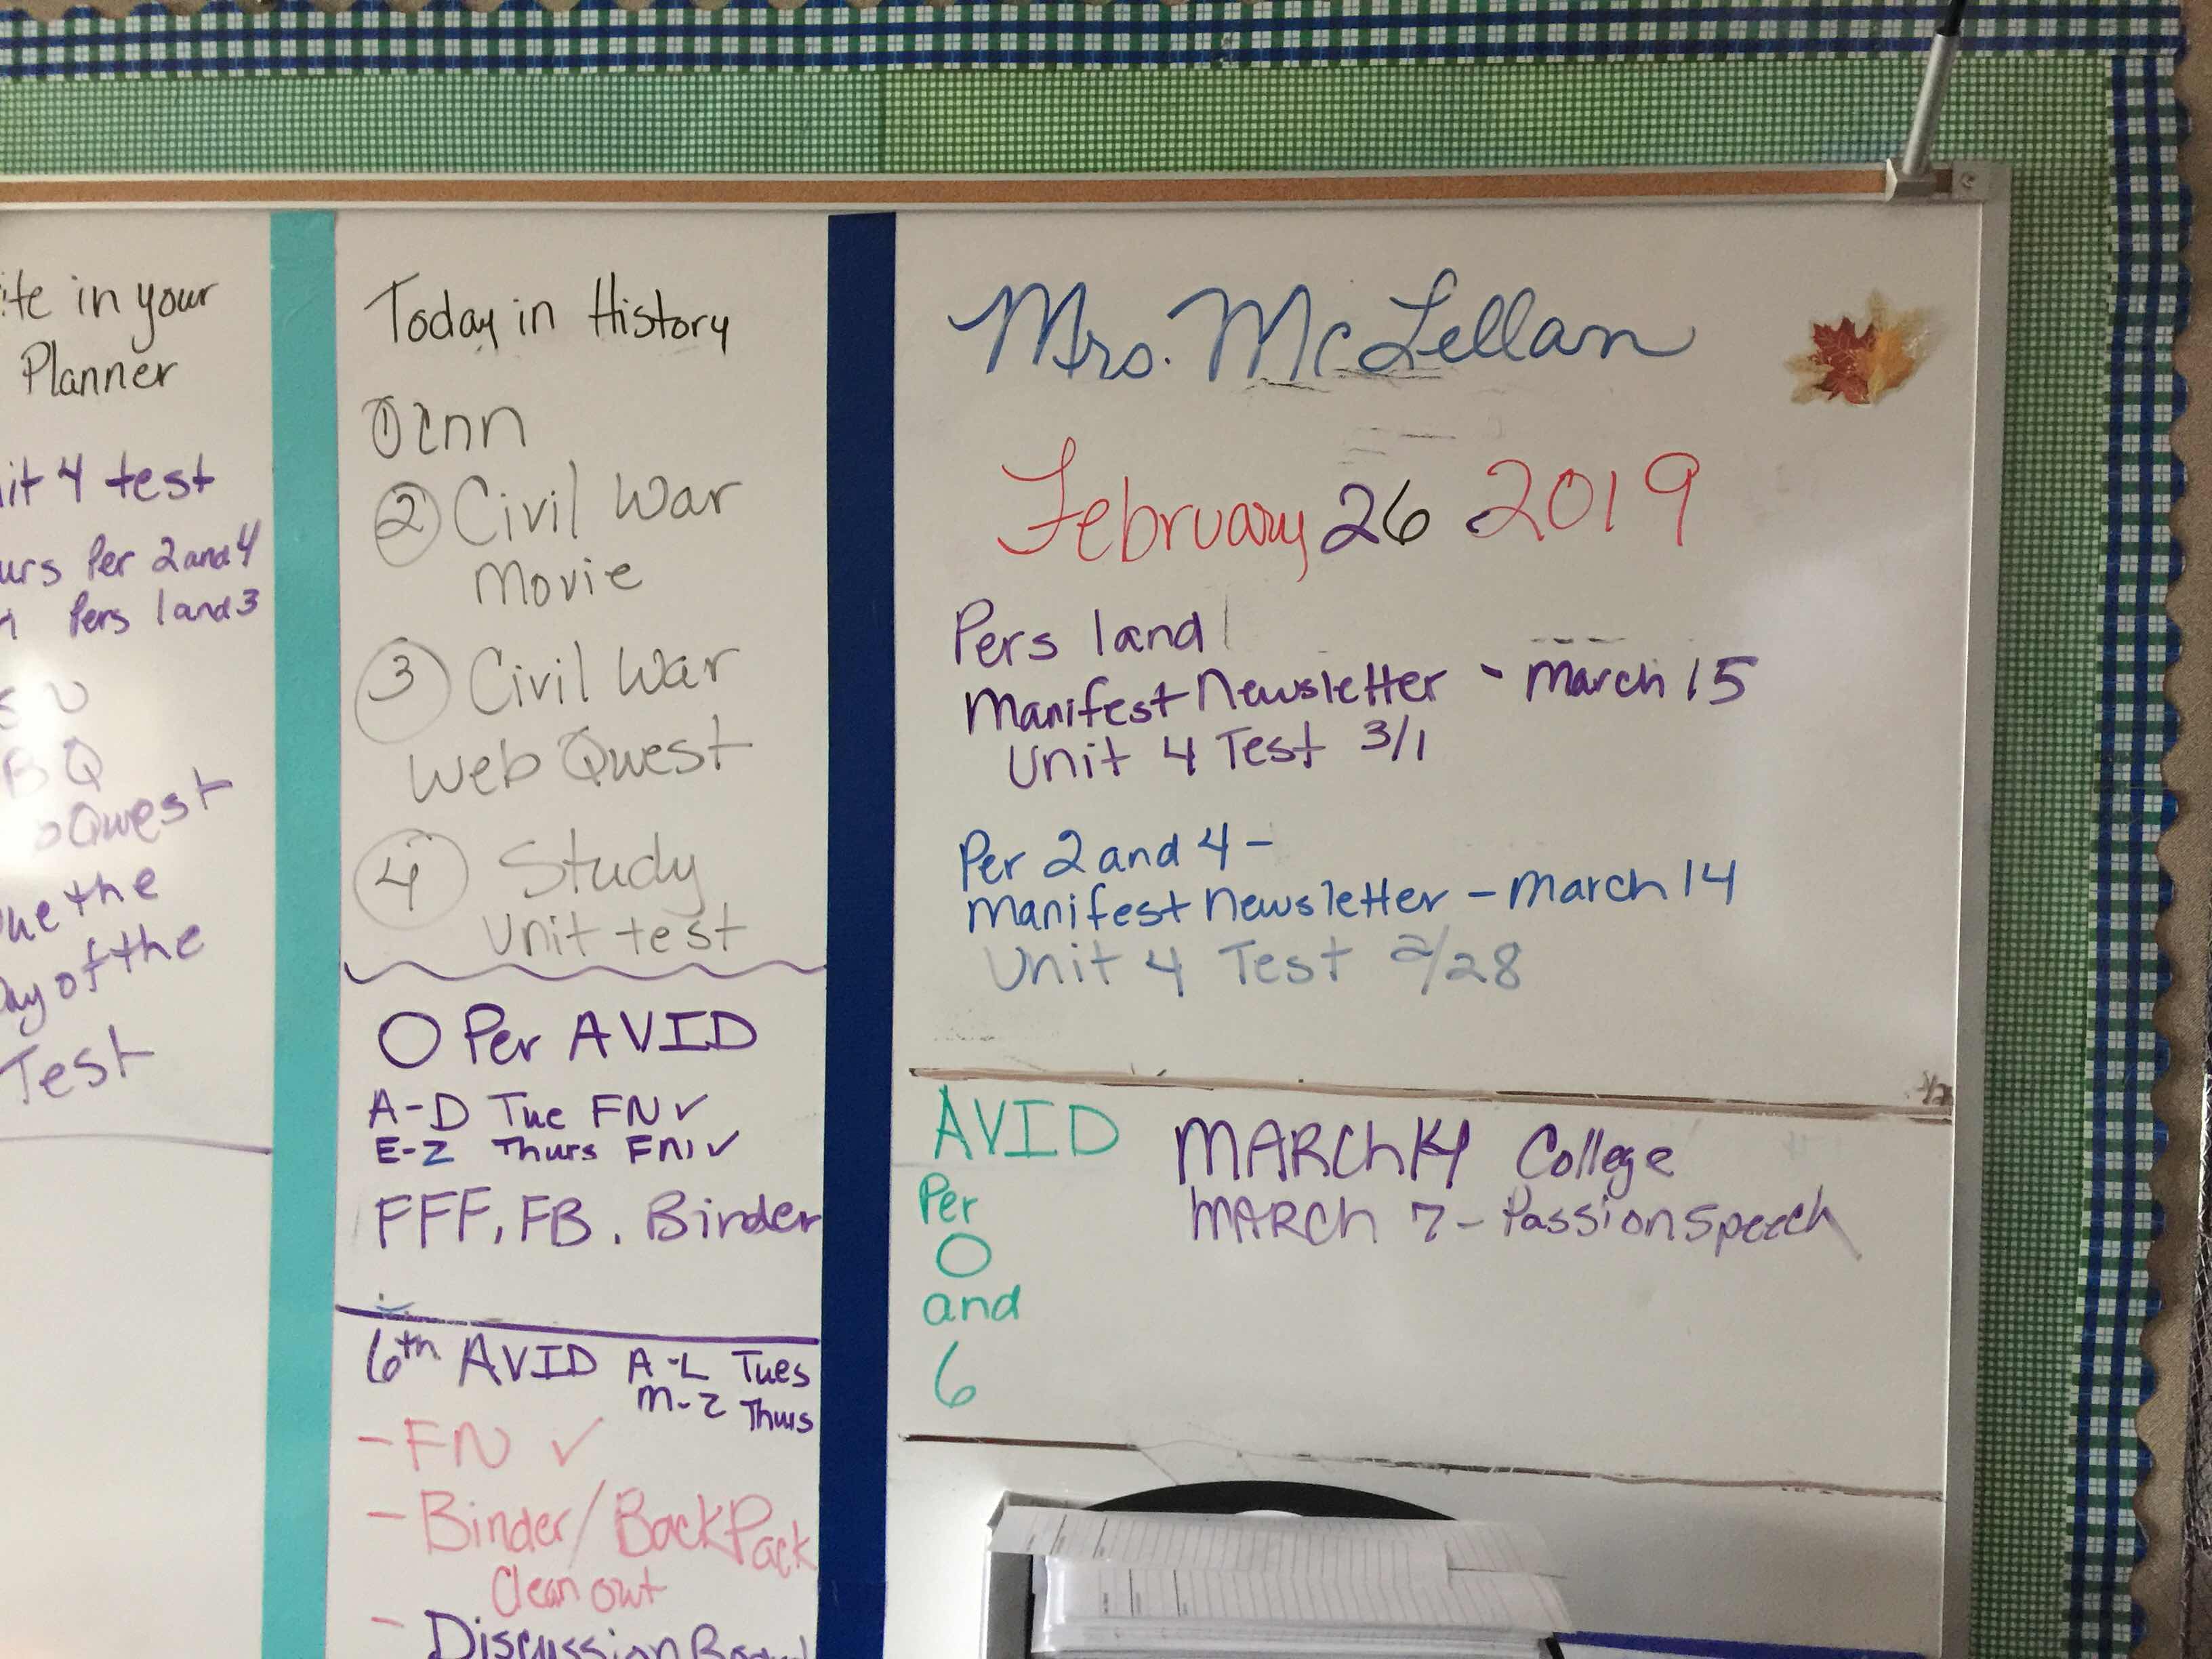 in your
Planner
4 test
Per 2 and 4
Pers 1 and 3
Quest
the
Day of the
Test
Today in History
① cnn
② Civil War
Movie
③ Civil War
Web Quest
④ Study
Unit test
O Per AVID
A-D Tue FN ✓
E-Z Thurs FN ✓
FFF, FB, Binder
6th AVID A-L Tues
M-Z Thurs
- FN ✓
- Binder/BackPack
Clean out
- Discussion Board
Mrs. McLellan
February 26 2019
Pers 1 and
Manifest Newsletter - March 15
Unit 4 Test 3/1
Per 2 and 4 -
Manifest Newsletter - March 14
Unit 4 Test 2/28
AVID
Per
O
and
6
MARCH 14 College
MARCH 7 - Passion Speech